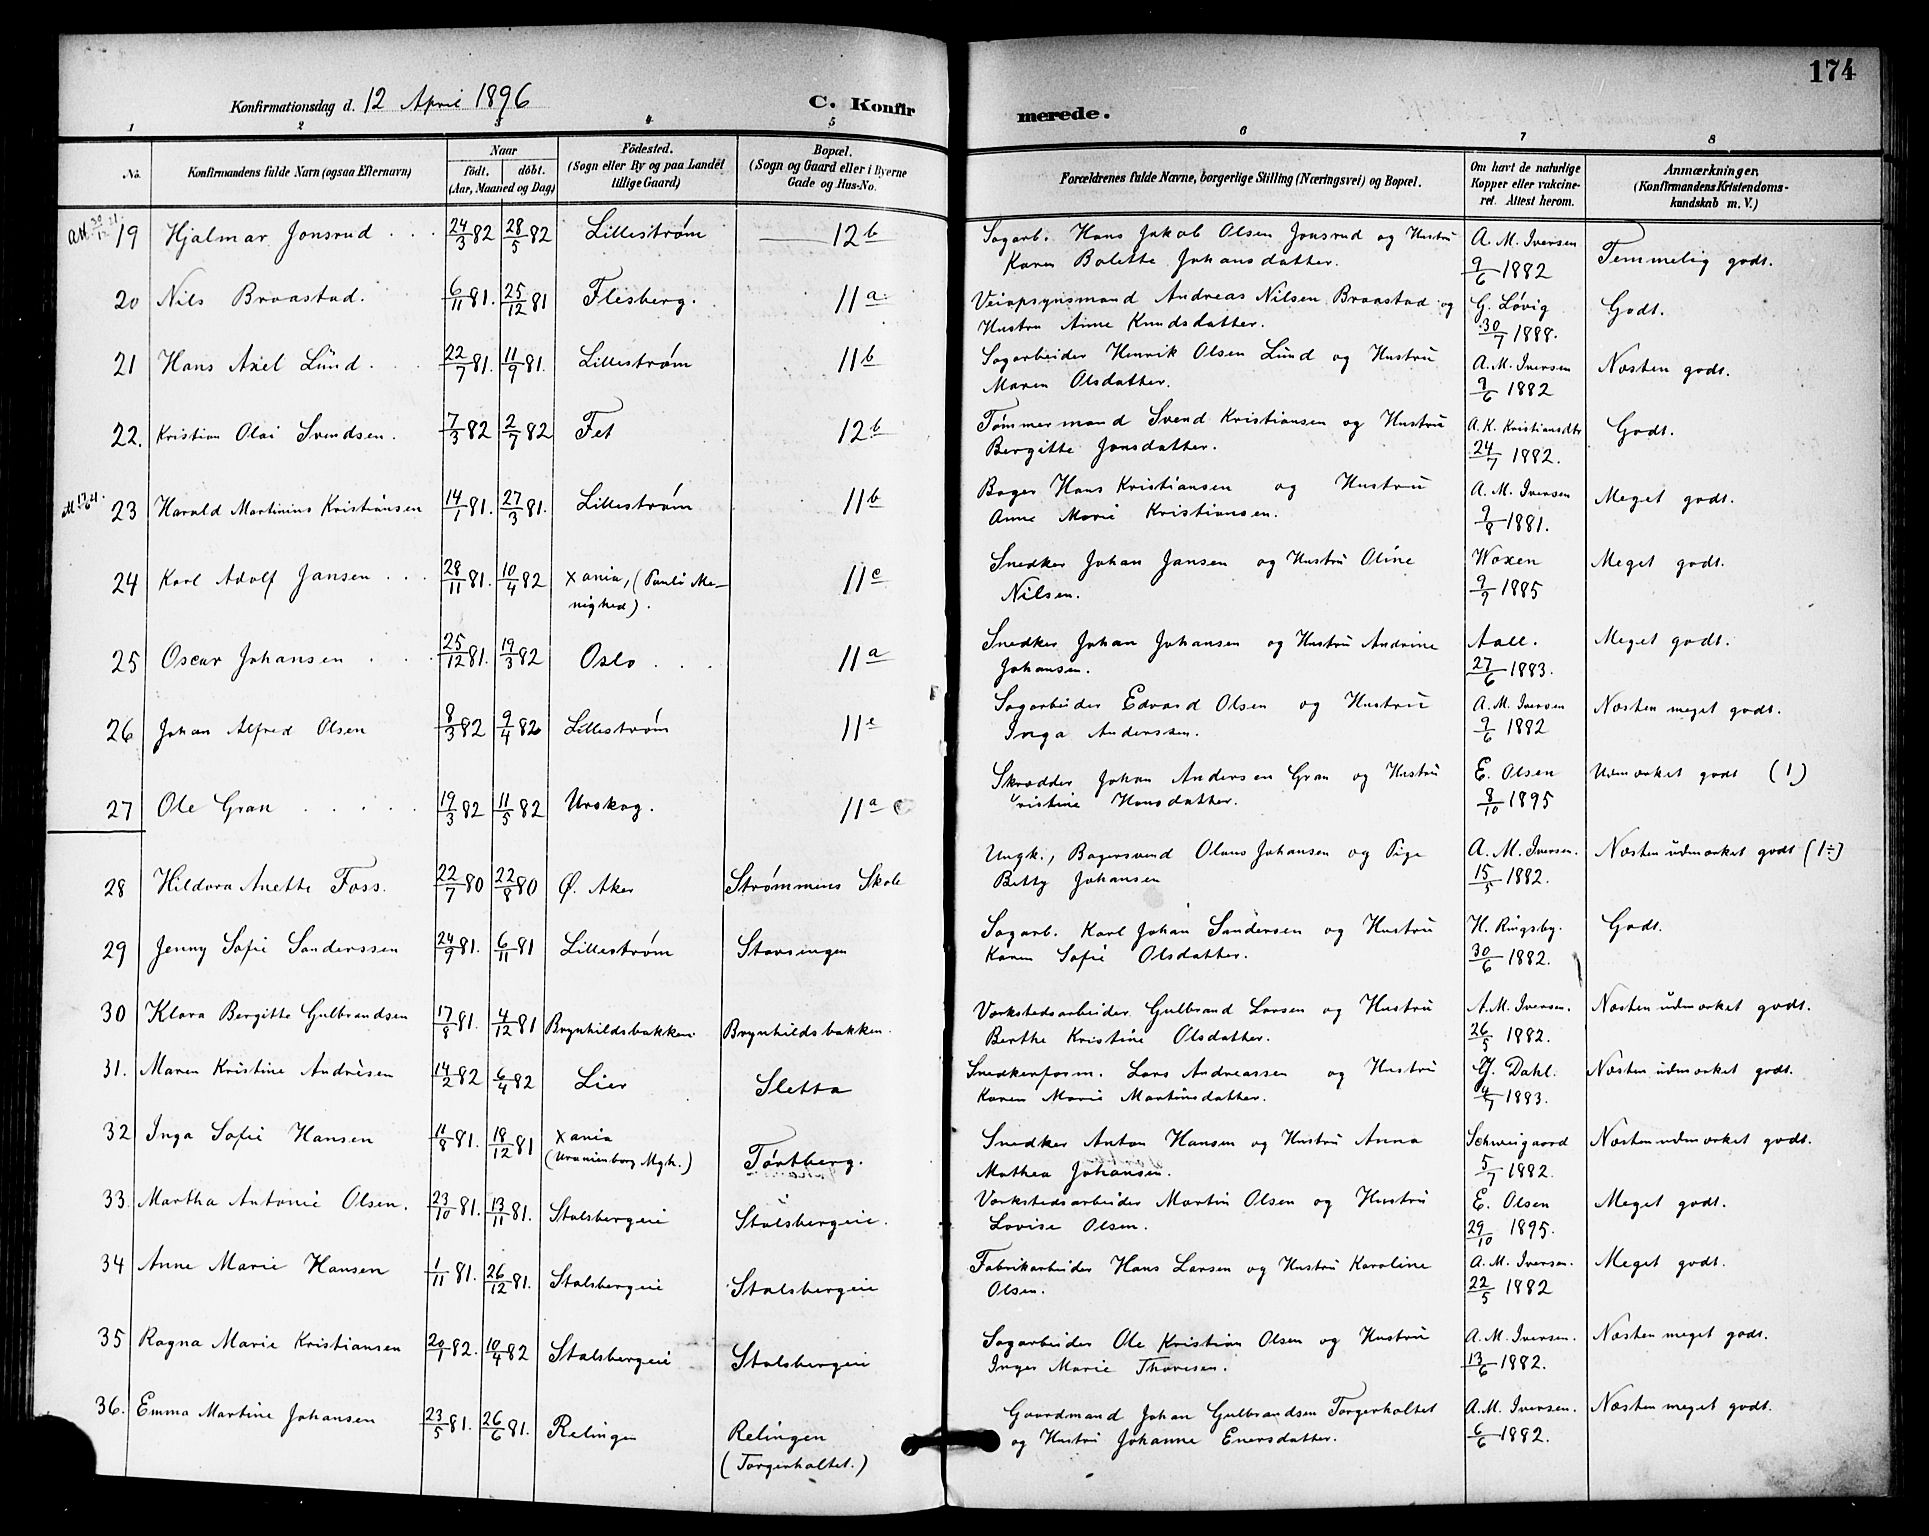 174
Konfirmationsdag d. 12 April 1896
C. Konfirmerede.
1 2 3 4 5 6 7 8
No.
Konfirmandens fulde Navn (ogsaa Efternavn)
Naar
født. døbt.
(Aar, Maaned og Dag)
Fødested.
(Sogn eller By og paa Landet
tillige Gaard)
Bopæl.
(Sogn og Gaard eller i Byerne
Gade og Hus-No.
Forældrenes fulde Navne, borgerlige Stilling (Næringsvei) og Bopæl.
Om havt de naturlige
Kopper eller vakcine-
ret. Attest herom.
Anmærkninger.
(Konfirmandens Kristendoms-
kundskab m. V.)
19 Hjalmar Jonsrud 24/3 82 28/5 82 Lillestrøm 12 b Sagarb. Hans Jakob Olsen Jonsrud og Hustru A. M. Iversen Temmelig godt.
Karen Bolette Johansdatter. 9/6 1882
20 Nils Braastad. 6/11 81. 25/12 81 Flesberg. 11 a Veiopsynsmand Andreas Nilsen Braastad og G. Løvig Godt.
Hustru Anne Knudsdatter. 30/7 1888.
21 Hans Axel Lund. 22/7 81. 11/9 81. Lillestrøm 11 b Sagarbeider Henrik Olsen Lund og Hustru A. M. Iversen Næsten godt.
Maren Olsdatter. 9/6 1882
22. Kristian Olai Svendsen. 7/3 82 2/7 82 Fet 12 b Tømmermand Svend Kristiansen og Hustru A. K. Kristiansdtr Godt.
Bergitte Jonsdatter. 24/7 1882.
23 Harald Martinius Kristiansen 14/1 81. 27/3 81. Lillestrøm 11 b Bager Hans Kristiansen og Hustru A. M. Iversen Meget godt.
Anne Marie Kristiansen. 9/8 1881.
24 Karl Adolf Jansen 28/11 81. 10/4 82 Xania, (Pauli Me- 11 c Snedker Johan Jansen og Hustru Oline Woxen Meget godt.
nighed). Nilsen. 9/9 1885
25 Oscar Johansen 25/12 81. 19/3 82 Oslo 11 a Snedker Johan Johansen og Hustru Andrine Aall. Meget godt.
Johansen. 27/6 1883.
26 Johan Alfred Olsen 8/3 82 9/4 82 Lillestrøm 11 c Sagarbeider Edvard Olsen og Hustru A. M. Iversen Næsten meget godt.
Inga Anderssen. 9/6 1882
27 Ole Gran 19/3 82 11/5 82 Urskog. 11 a Skrædder Johan Andersen Gran og Hustru E. Olsen Udmærket godt (1)
Kristine Hansdatter. 8/10 1895
28 Hildora Anette Foss. 22/7 80 22/8 80 Ø. Aker Strømmens Skole Ungk., Bagersvend Olaus Johansen og Pige A. M. Iversen. Næsten udmærket godt (1÷)
Betty Johansen 15/5 1882.
29 Jenny Sofie Sanderssen 24/9 81. 6/11 81 Lillestrøm Stavsingen Sagarb. Karl Johan Sandersen og Hustru H. Ringsby. Godt.
Karen Sofie Olsdatter. 30/6 1882.
30 Klara Bergitte Gulbrandsen 17/8 81. 4/12 81 Brynhildsbakken Brynhildsbakken. Værkstedsarbeider Gulbrand Larsen og Hustru A. M. Iversen. Næsten udmærket godt.
Berthe Kristine Olsdatter. 26/5 1882.
31. Maren Kristine Andrésen 14/2 82 6/4 82 Lier Sletta Snedkerform. Lars Andreassen og Hustru Dahl. Næsten udmærket godt.
Karen Marie Martinsdatter. 4/7 1883.
32 Inga Sofie Hansen 11/8 81. 18/12 81 Xania Tørtberg. Snedker Anton Hansen og Hustru Anna Schweigaard Næsten udmærket godt.
(Uranienborg Mgh.) Mathea Johansen. 5/7 1882.
33. Martha Antonie Olsen. 23/10 81. 13/11 81. Stalsbergeie Stalsbergeie. Værkstedsarbeider Martin Olsen og Hustru E. Olsen Meget godt.
Lovise Olsen. 29/10 1895.
34 Anne Marie Hansen 1/11 81. 26/12 81. Stalsbergeie Stalsbergeie Fabrikarbeider Hans Larsen og Hustru Karoline A. M. Iversen. Meget godt.
Olsen. 22/5 1882
35 Ragna Marie Kristiansen 20/1 82. 10/4 82 Stalsbergeie Stalsbergeie Sagarbeider Ole Kristian Olsen og Hustru A. M. Iversen. Næsten meget godt.
Inger Marie Thoresen. 13/6 1882.
36. Emma Martine Johansen 23/5 81. 26/6 81. Relingen Relingen Gaardmand Johan Gulbrandsen Torgerholtet A. M. Iversen. Næsten meget godt.
(Torgerholtet.) og Hustru Johanne Enersdatter. 6/6 1882.